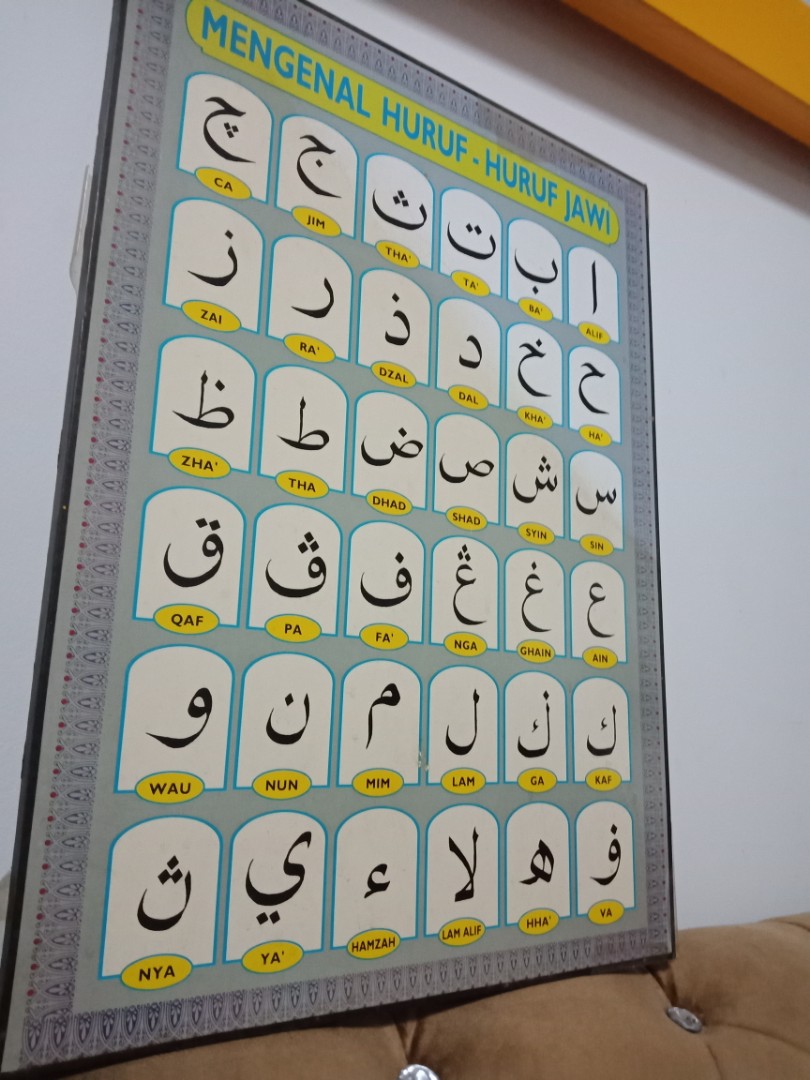 MENGENAL HURUF - HURUF JAWI
ا ب ت ث ج چ
CA JIM THA' TA' BA' ALIF
ح خ د ذ ر ز
ZAI RA' DZAL DAL KHA' HA'
س ش ص ض ط ظ
ZHA' THA DHAD SHAD SYIN SIN
ع غ ڠ ف ڤ ق
QAF PA FA' NGA GHAIN AIN
ك ڬ ل م ن و
WAU NUN MIM LAM GA KAF
ۏ ه لا ء ي ڽ
NYA YA' HAMZAH LAM ALIF HHA' VA